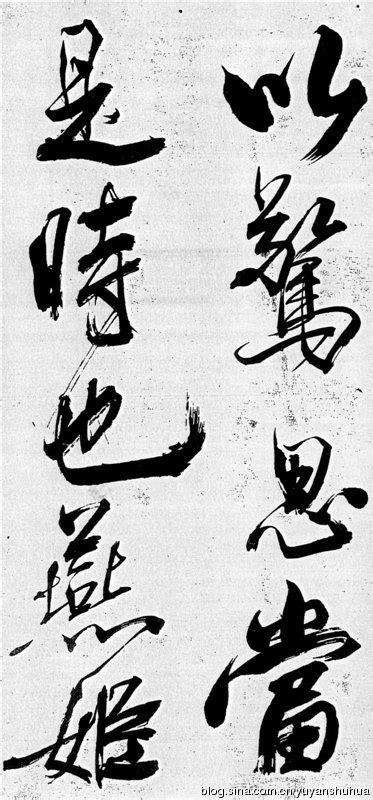 以驚思當
是時也燕姬
blog.sina.com.cn/yuyanshuhua